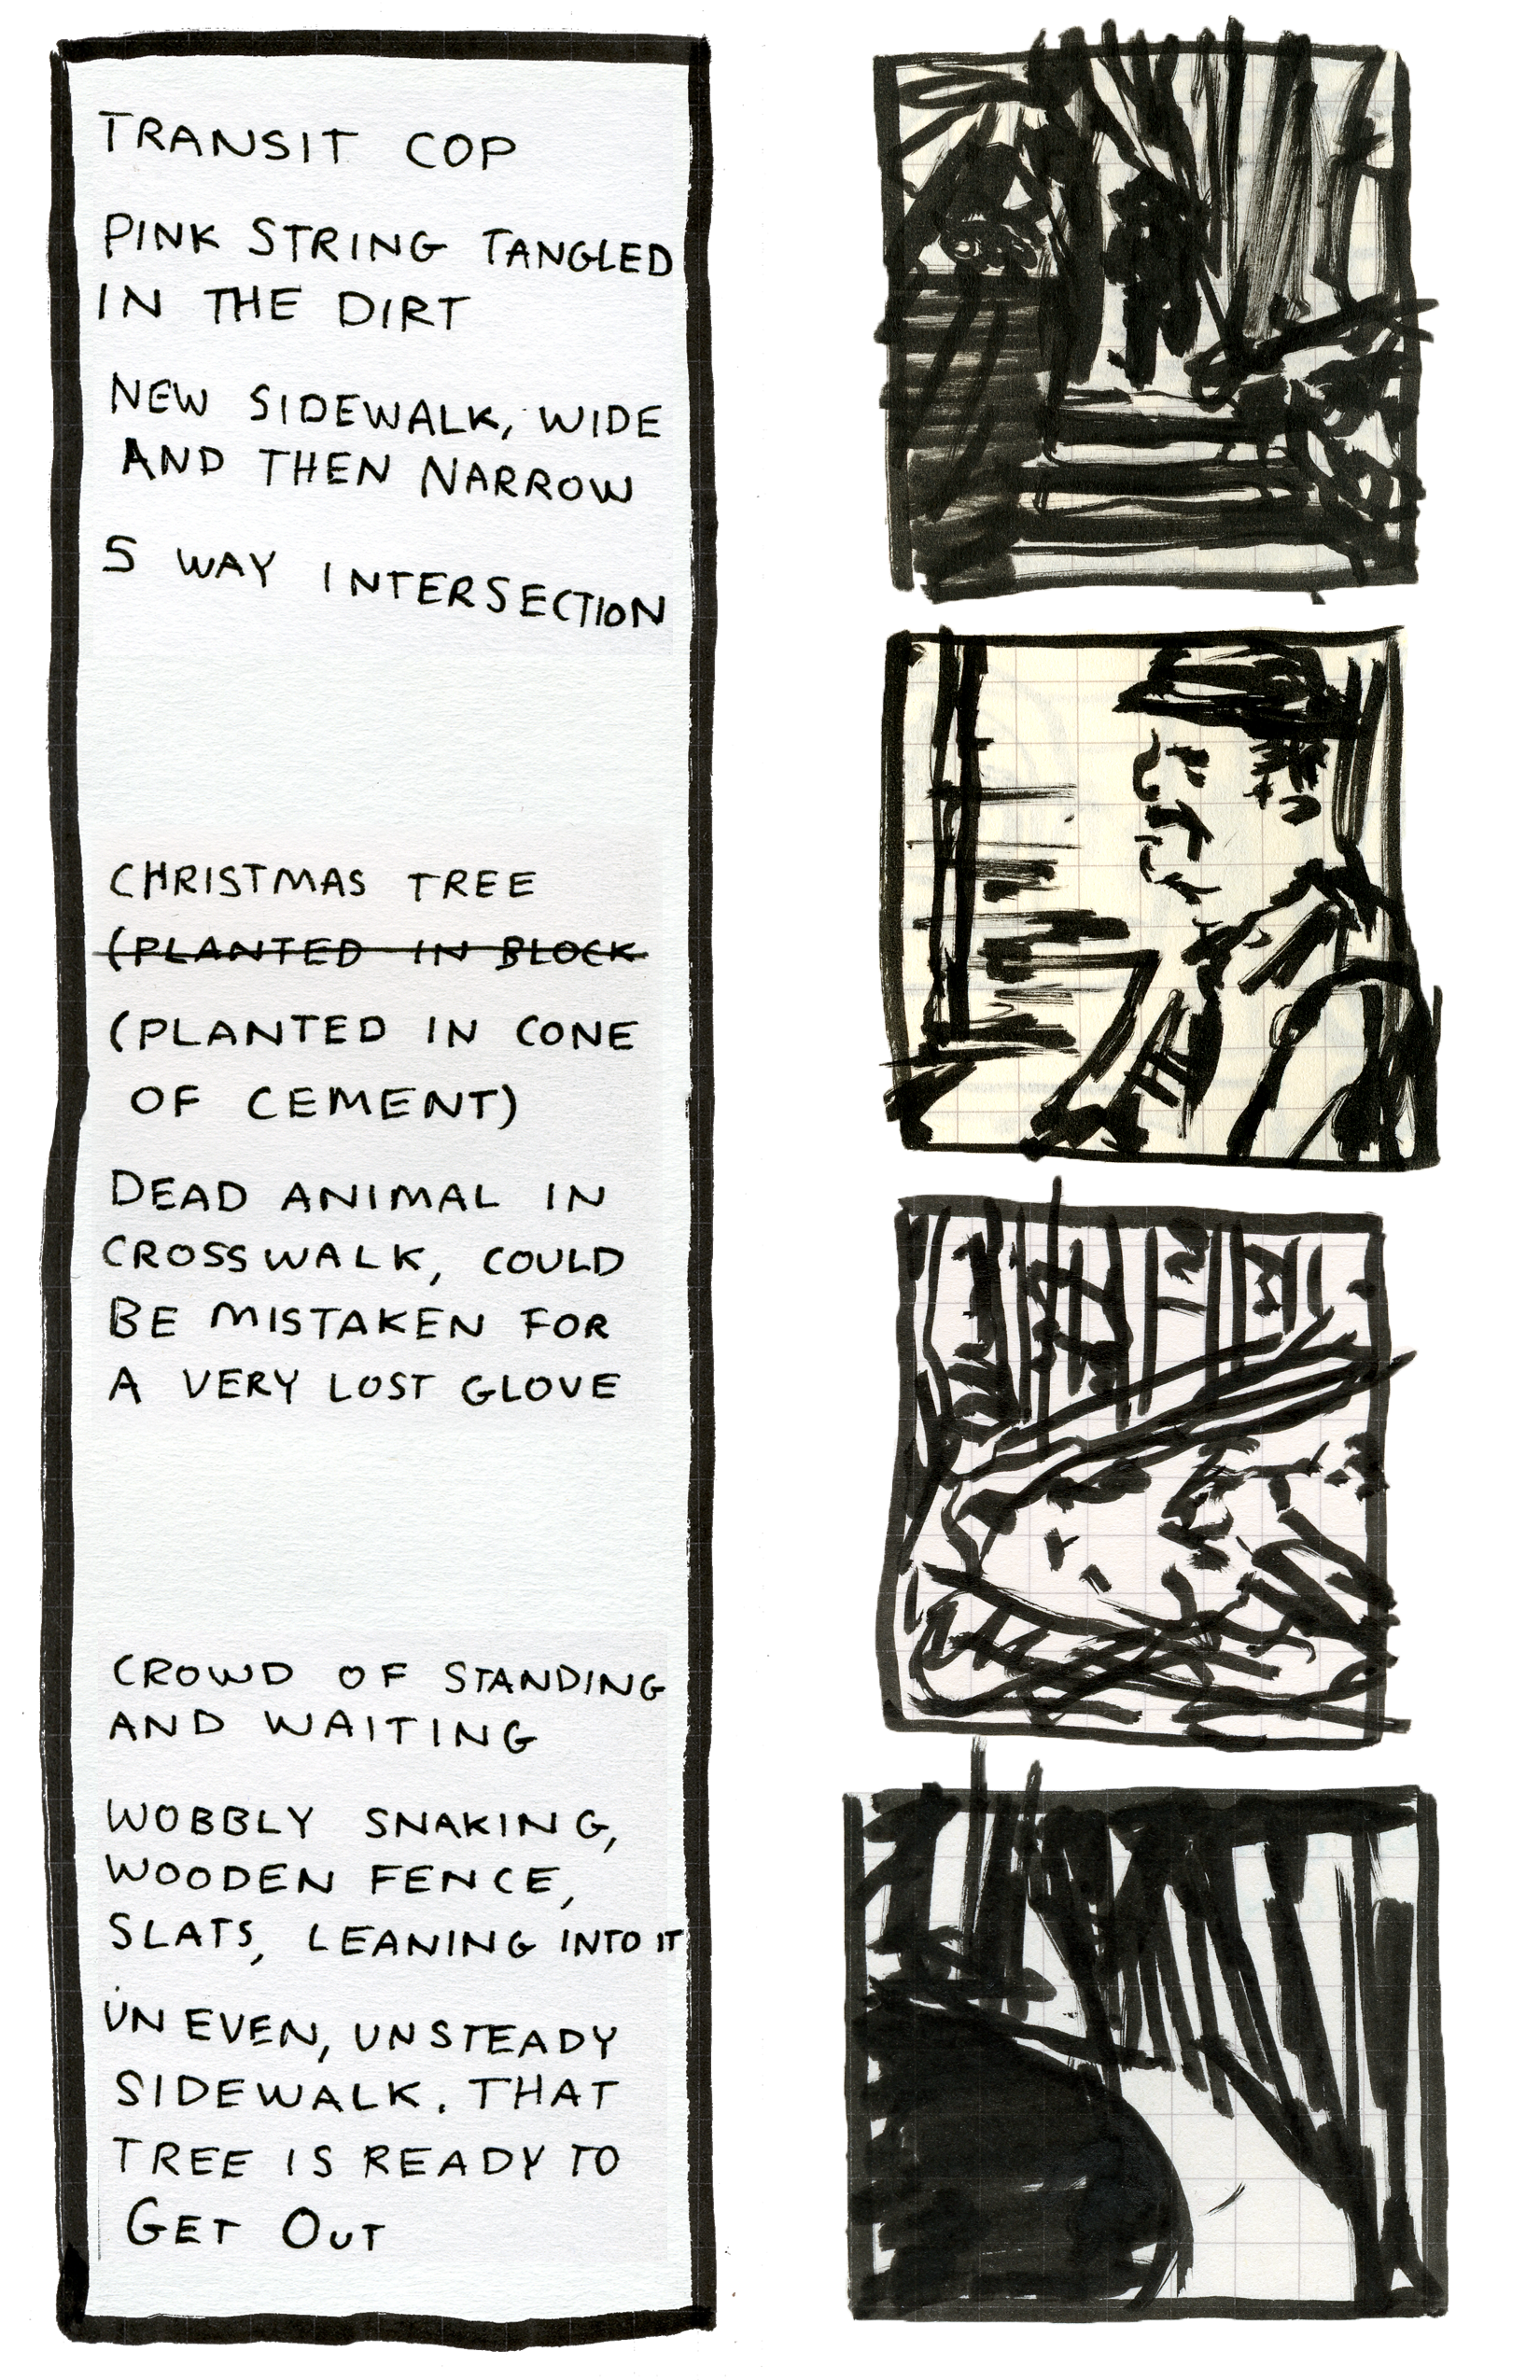 TRANSIT COP
PINK STRING TANGLED
IN THE DIRT
NEW SIDEWALK, WIDE
AND THEN NARROW
5 WAY INTERSECTION
CHRISTMAS TREE
(PLANTED IN BLOCK
(PLANTED IN CONE
OF CEMENT)
DEAD ANIMAL IN
CROSSWALK, COULD
BE MISTAKEN FOR
A VERY LOST GLOVE
CROWD OF STANDING
AND WAITING
WOBBLY SNAKING,
WOODEN FENCE,
SLATS, LEANING INTO IT
UNEVEN, UNSTEADY
SIDEWALK. THAT
TREE IS READY TO
GET OUT